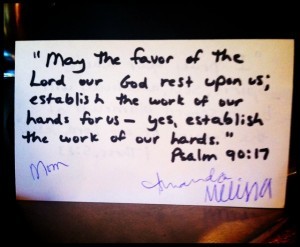 "May the favor of the
Lord our God rest upon us;
establish the work of our
hands for us— yes, establish
the work of our hands."
Psalm 90:17
Mom
Amanda
Melissa